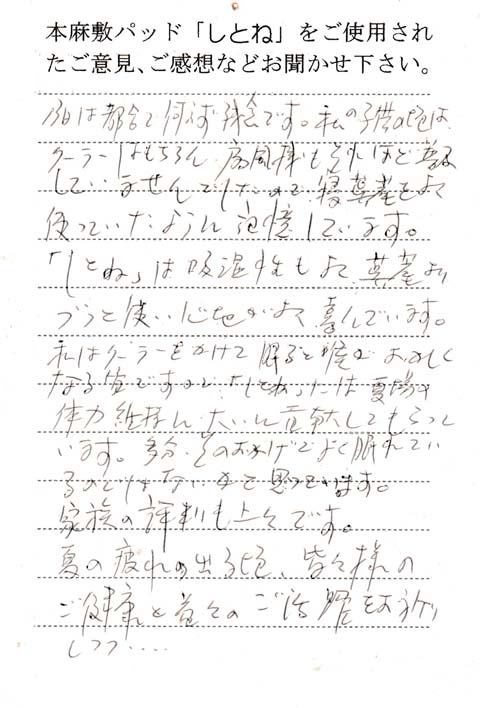 本麻敷パッド「しとね」をご使用され
たご意見、ご感想などお聞かせ下さい。
は都合で行けず残念です。私の子供の頃は、
クーラーはもちろん、扇風機もそれほど普及
していませんでしたので寝茣蓙をよく
使っていたように記憶しています。
「しとね」は吸湿性もよく、茣蓙より
ずっと使い心地がよく喜んでいます。
私はクーラーをかけて眠ると喉がおかしく
なる質ですので、「しとね」には夏場の
体力維持に大いに貢献してもらって
います。多分、そのおかげでよく眠れてい
るのではないかと思っています。
家族の評判も上々です。
夏の疲れの出る頃、皆々様の
ご健康と益々のご活躍をお祈り
しつつ・・・・・